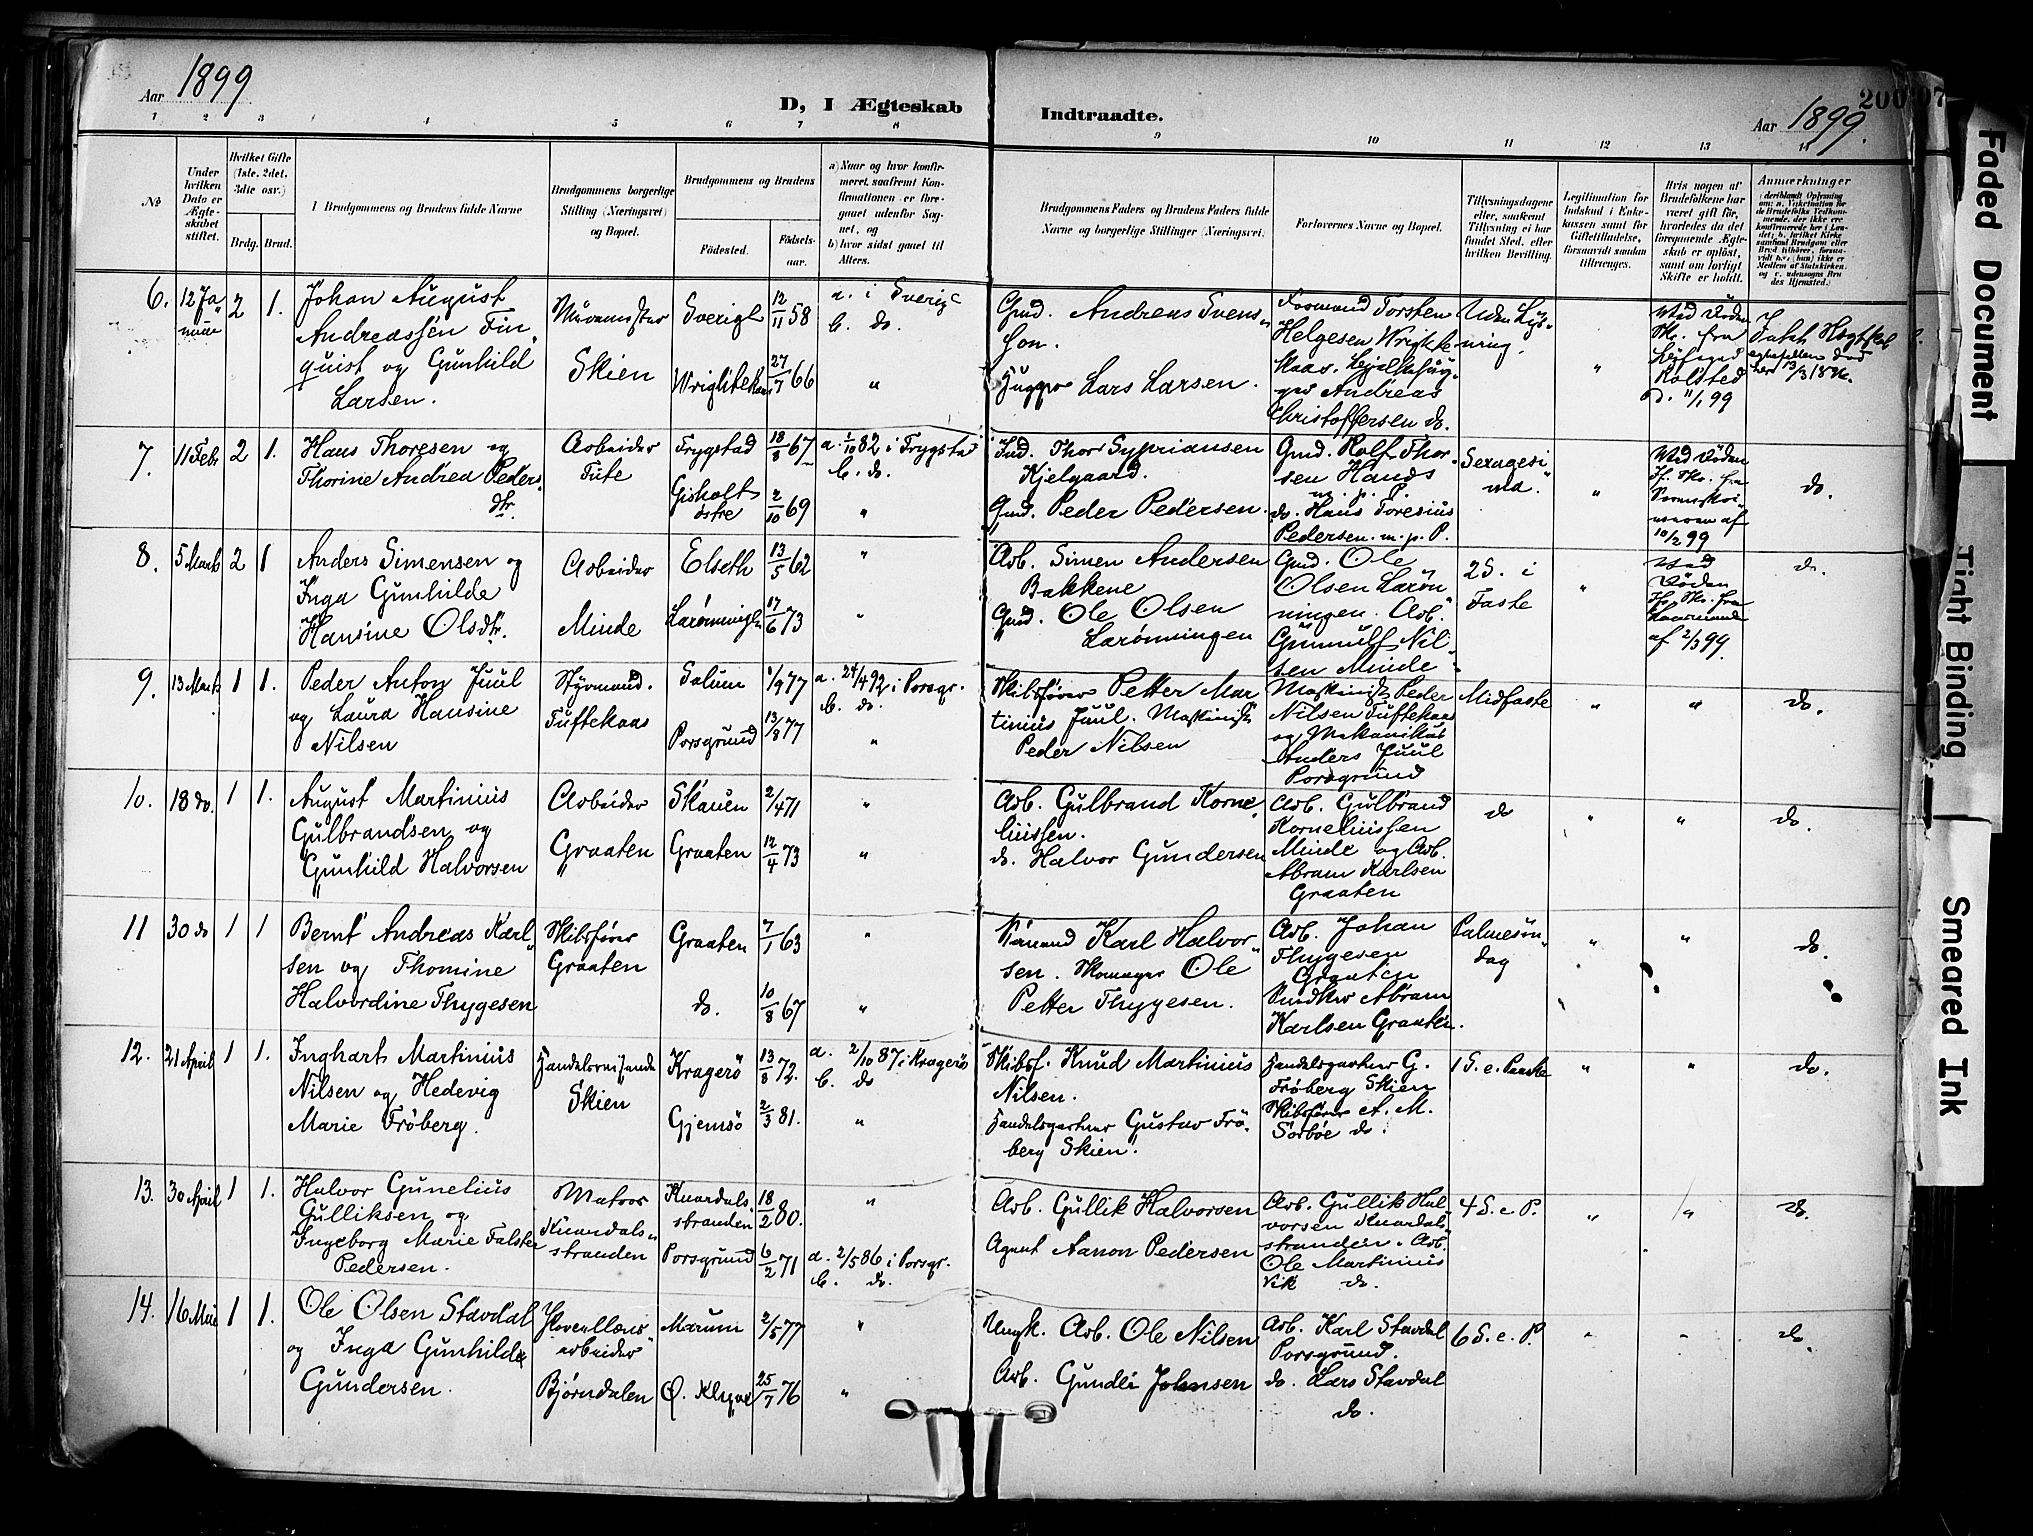 Aar 1899
D, I Ægteskab
Indtraadte.
Aar 1899.
200
1 2 3 4 5 6 7 8 9 10 11 12 13 14
No
Under hvilken Dato er Ægteskabet stiftet.
Hvilket Gifte (1ste, 2det, 3die osv.)
Brdg. Brud.
Brudgommens og Brudens fulde Navne
Brudgommens borgerlige Stilling (Næringsvei) og Bopæl.
Brudgommens og Brudens
Födested.
Födselsaar.
a) Naar og hvor konfirmeret, saafremt Konfirmationen er foregaaet udenfor Sognet, og
b) hvor sidst gaaet til Alters.
Brudgommens Faders og Brudens Faders fulde Navne og borgerlige Stillinger (Næringsvei)
Forlovernes Navne og Bopæl.
Tillysningsdagene eller, saafremt Tillysning ei har fundet Sted, efter hvilken Bevilling.
Legitimation for Indskud i Enkekassen samt for Giftetilladelse, forsaavidt saadan tiltrænges.
Hvis nogen af Brudefolkene har været gift før, hvorledes da det foregaaende Ægteskab er opløst, samt om lovligt Skifte er holdt.
Anmærkninger
6. 12 Ja 2 1.
Johan August
Andreassen Fin
quist og Gunhild
Larsen.
Murermester
Skien
Sverige 12/11 58
27/7 66
a. i Sverig
b. do.
"
Gmd. Andreas Svens
son.
Lars Larsen.
Formand Torsten
Helgesen
Andreas
Christoffersen do.
Uden Lys
ning.
"
Ved Döden
Sk. fra
Rolsted
d. 11/1 99
7. 11 Febr 2 1.
Hans Thoresen og
Thorine Andrea Peders
dtr.
Arbeider
Tufte
Trygstad 18/8 67
Gisholt
østre 2/10 69
a. 1/10 82 i Trygstad
b. do.
"
Ind. Thor Sypriansen
Kjelgaard.
Gmd. Peder Pedersen.
Gmd. Rolf Thor
sen Hands
m. p. P.
do. Hans Toresius
Pedersen. m. p. P.
Sexagesi
ma.
"
Ved Döden
af
10/2 99
do.
8. 5 Marts 2 1
Anders Simensen og
Inga Gunhilde
Hansine Olsdtr.
Arbeider
Minde
Elseth 13/5 62
17/6 73
"
"
Arb. Simen Andersen
Bakkene
Gmd. Ole Olsen
Larønningen
Gmd. Ole
Olsen Larøn
ningen. Arb.
Gunnulf Nil
sen Minde
2 S. i
Faste
"
Ved
Döden
af 2/3 99.
do.
9. 13 Marts 1 1.
Peder Anton Juul
og Laura Hansine
Nilsen
Styrmand.
Tuftekaas
Solum 1/9 77
Porsgrund 13/8 77
a. 24/4 92 i Porsgr.
b. do.
"
Skibsfører Petter Mar
tinius Juul. Maskinist
Peder Nilsen
Maskinist Peder
Nilsen Tuftekaas
og Mekanikus
Anders Juul
Porsgrund
Midfaste
"
"
do.
10. 18 do. 1 1.
August Martinius
Gulbrandsen og
Gunhild Halvorsen
Arbeider
Graaten
Skauen 2/4 71
Graaten 12/4 73
"
"
Arb. Gulbrand Korne
liussen.
do. Halvor Gundersen
Arb. Gulbrand
Korneliussen
Minde og Arb.
Abram Karlsen
Graaten
do
"
"
do.
11 30 do 1 1
Bernt Andreas Karl
sen og Thomine
Halvordine Thygesen
Skibsfører
Graaten
Graaten 7/1 63
do. 10/8 67
"
"
Sømand Karl Halvor
sen. Skomager Ole
Petter Thygesen.
Arb. Johan
Thygesen
Graaten
Abram
Karlsen Graaten.
Palmesön
dag
"
"
do.
12. 21 April 1 1.
Inghart Martinius
Nilsen og Hedevig
Marie Fröberg.
Handelsreisende
Skien
Kragerö 13/8 72.
Gjemsö 2/3 81.
a. 2/10 87 i Kragerø
b. do
"
Skibsf. Knud Martinius
Nilsen.
Handelsgartner Gustav Frö
berg Skien.
Handelsgartner G.
Fröberg Skien
Skibsfører A. M.
Sorböe do.
1 S. e. Paaske
"
"
do.
13. 30 April 1 1.
Halvor Gunelius
Gulliksen og
Ingeborg Marie Falster
Pedersen.
Matros
Knardals
stranden
Knardals
stranden 18/2 80.
Porsgrund 6/2 71
"
a. 2/5 86 i Porsgr.
b. do.
Arb. Gullik Halvorsen
Agent Aanon Pedersen
Arb. Gullik Hal
vorsen Knardals
stranden. Arb.
Ole Martinius
Vik do.
4 S. e P.
"
"
do.
14. 16 Mai 1 1.
Ole Olsen Stavdal
og Inga Gunhilde
Gundersen.
arbeider
Bjørndalen
Mærum 2/5 77
Ø. Klyve 25/7 76
"
"
Ungk. Arb. Ole Nilsen
Arb. Gunder Johnsen
Arb. Karl Stavdal
Porsgrund.
do. Lars Stavdal
do.
6 S. e. P.
"
"
do.
Faded Document
Tight Binding
Smeared Ink